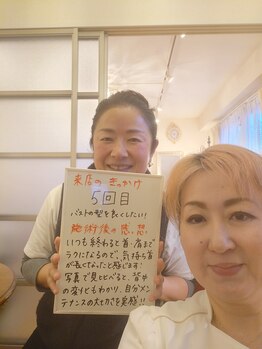 来店のきっかけ
5回目
バストの型を良くしたい!
施術後の感想
いつも終わると首・肩まで
ラクになるので、気持ち首
が長くなったと感じます!
写真で見比べると、背中
の変化もわかり、自分メン
テナンスの大切さを実感!!